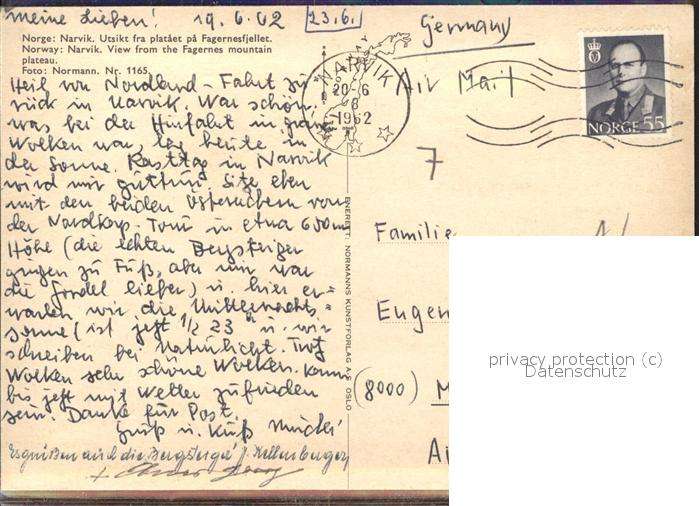 meine Lieben! 19.6.62 23.6.
Norge: Narvik. Utsikt fra platået på Fagernesfjellet.
Norway: Narvik. View from the Fagernes mountain
plateau.
Foto: Normann. Nr. 1165.
Heil von Nordland-Fahrt zu
rück in Narvik. War schön.
was bei der Hinfahrt in grau
Wolken war, lag heute in
der Sonne. Rasttag in Narvik
wird mir guttun. Sitze eben
mit den beiden Österreichern von
der Nordkap-Tour in etwa 650 m
Höhe (die echten Bergsteiger
gingen zu Fuß, aber mir war
die Gondel lieber) u. hier er-
warten wir die Mitternachts-
sonne (ist jetzt ½ 23 h u. wir
schreiben bei Naturlicht. Trotz
Wolken sehr schöne Wolken. Kann
bis jetzt mit Wetter zufrieden
sein. Danke für Post.
Gruß u. Kuß
Es grüßen auch die Bergsteiger J. Kellenberger
+
ENERETT: NORMANNS KUNSTFORLAG A/S OSLO
NARVIK
20-6
8
1962
Germany
Air Mail
NORGE 55
7
Familie
Eugen
(8000) M
Ai
privacy protection (c)
Datenschutz